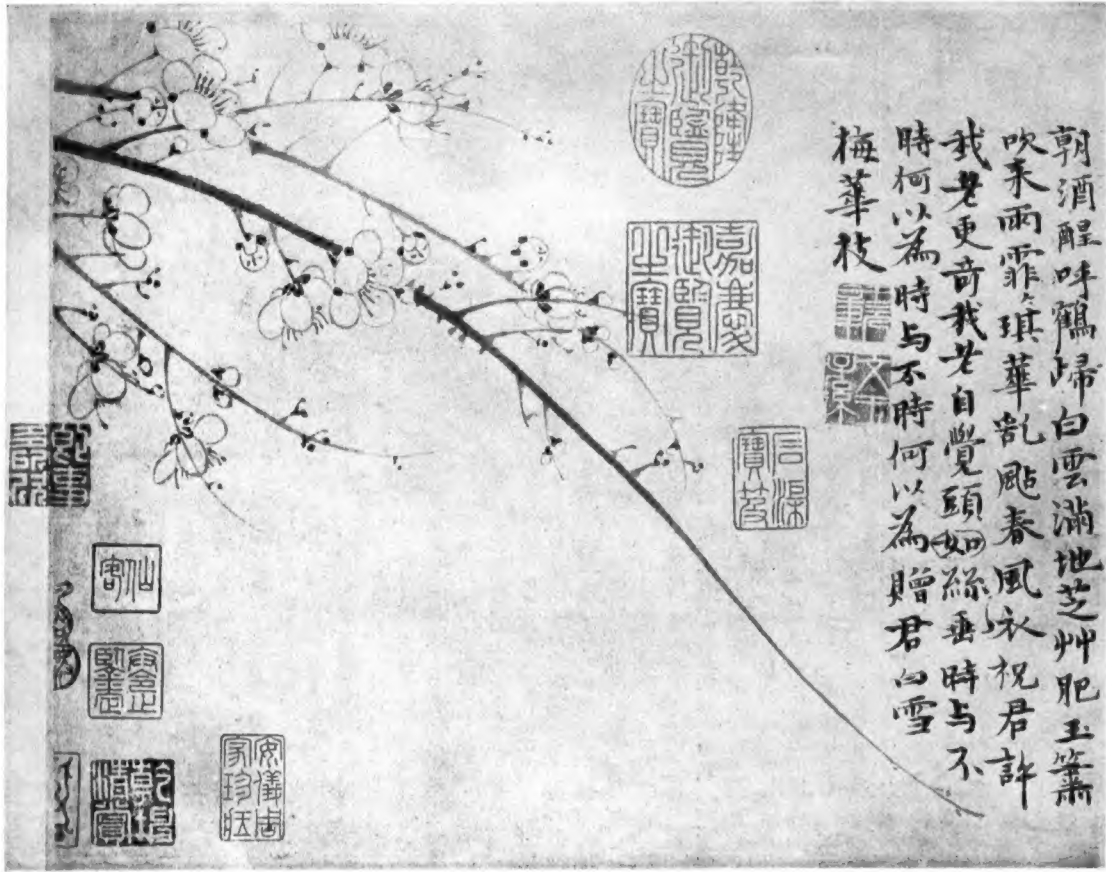 朝酒醒呼鶴歸白雲滿地芝艸肥玉簫
吹来雨霏〻琪華乱颭春風衣祝君許
我老更奇我老自覺頭如絲垂時与不
時何以為時与不時何以為贈君白雪
梅華枝
乾隆御覽之寶
嘉慶御覽之寶
石渠寶笈
仙客
安儀周家珍藏